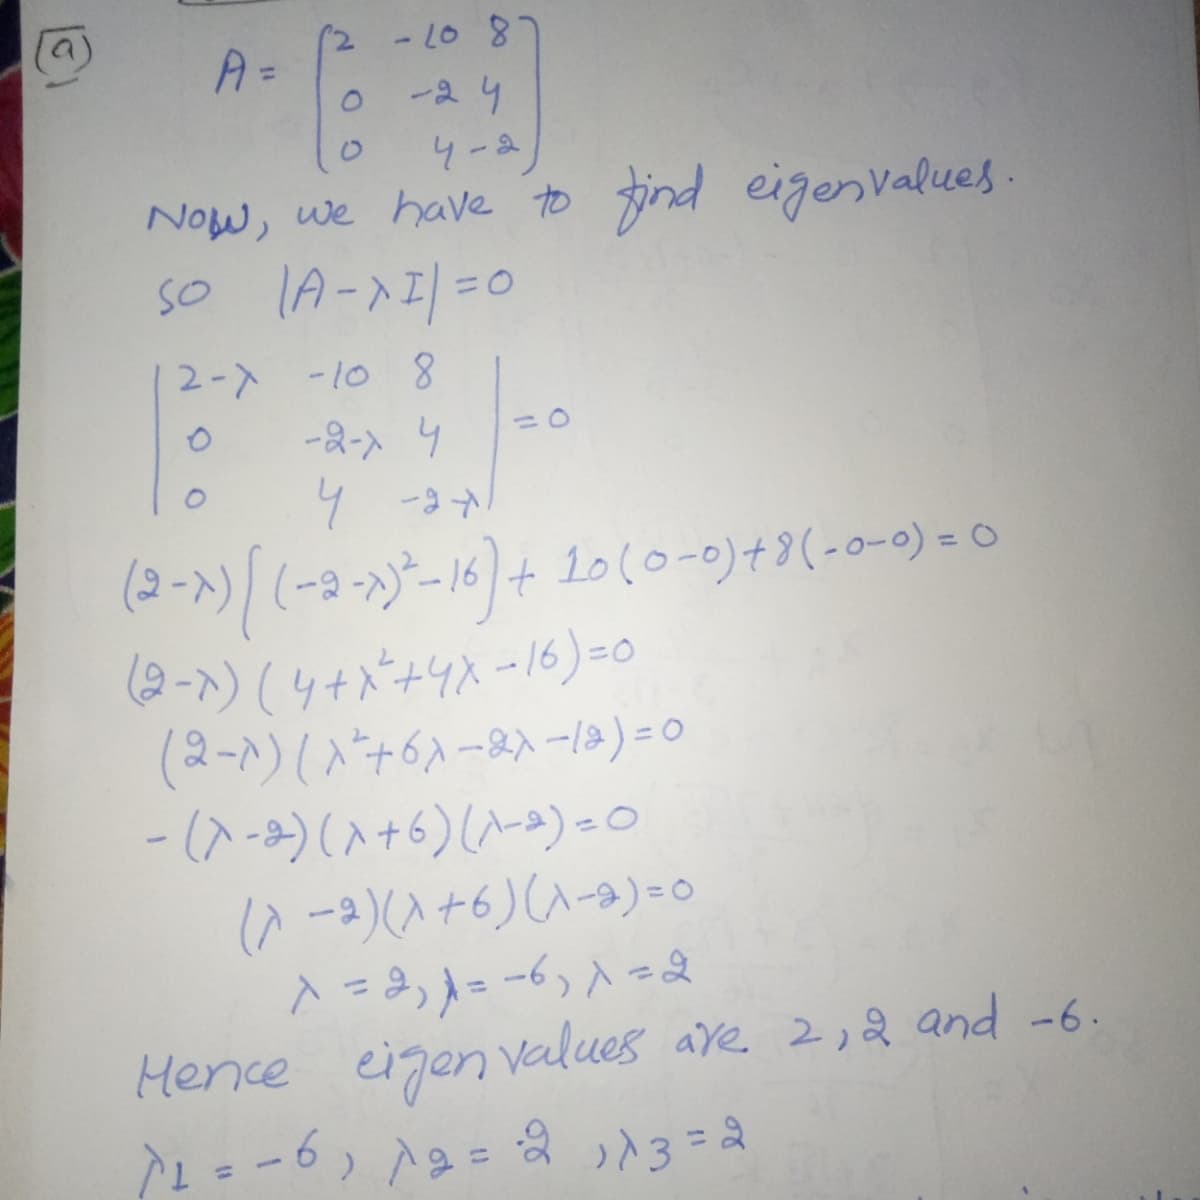 (a)
A = [2 -10 8
0 -2 4
0 4 -2]
Now, we have to find eigenvalues.
so |A-λI| = 0
|2-λ -10 8
0 -2-λ 4
0 4 -2-λ| = 0
(2-λ)[(-2-λ)²-16] + 10(0-0)+8(-0-0) = 0
(2-λ)(4+λ²+4λ-16)=0
(2-λ)(λ²+6λ-2λ-12)=0
-(λ-2)(λ+6)(λ-2)=0
(λ-2)(λ+6)(λ-2)=0
λ = 2, λ = -6, λ = 2
Hence eigenvalues are 2, 2 and -6.
λ1 = -6, λ2 = 2, λ3 = 2